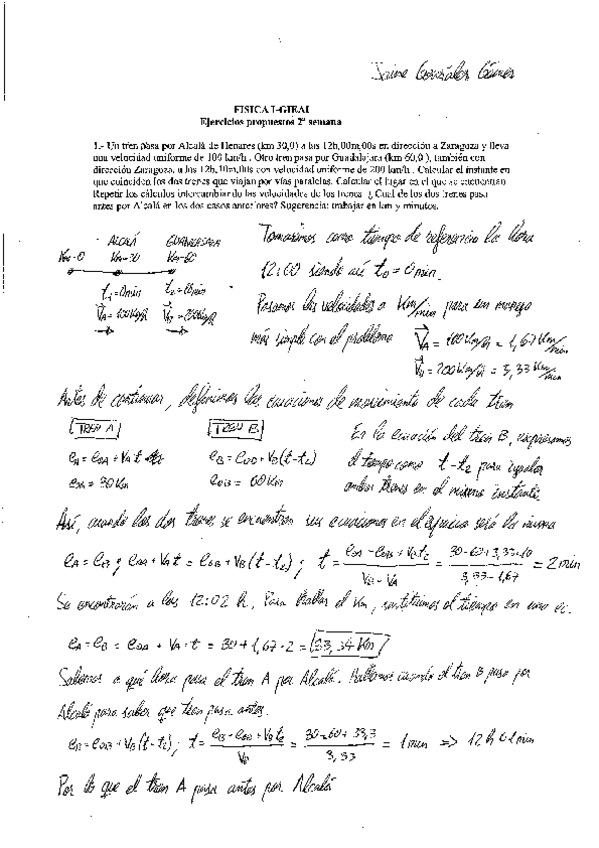 Jaime González Gómez
FISICA I-GIEAI
Ejercicios propuestos 2ª semana
1.- Un tren pasa por Alcalá de Henares (km 30,0) a las 12h,00m,00s en dirección a Zaragoza y lleva
una velocidad uniforme de 100 km/h. Otro tren pasa por Guadalajara (km 60,0), también con
dirección Zaragoza, a las 12h,10m,00s con velocidad uniforme de 200 km/h. Calcular el instante en
que coinciden los dos trenes que viajan por vías paralelas. Calcular el lugar en el que se encuentran
Repetir los cálculos intercambiando las velocidades de los trenes ¿Cual de los dos trenes pasa
antes por Alcalá en los dos casos anteriores? Sugerencia: trabajar en km y minutos.
ALCALÁ GUADALAJARA
Km=0 Km=30 Km=60
t1=0min
VA=100Km/h VB=200Km/h
Tomaremos como tiempo de referencia la hora
12:00 siendo así t0=0min.
Pasamos las velocidades a Km/min para un manejo
más simple con el problema VA=100Km/h=1,67Km/min
VB=200Km/h=3,33Km/min
Antes de continuar, definimos las ecuaciones de movimiento de cada tren
TREN A TREN B
eA=eOA+VA t eB=eOB+VB(t-t2)
eOA=30Km eOB=60Km
En la ecuación del tren B, expresamos
el tiempo como t-t2 para igualar
ambos trenes en el mismo instante.
Así, cuando los dos trenes se encuentran sus ecuaciones en el espacio será la misma
eA=eB; eOA+VAt=eOB+VB(t-t2); t=(eOA-eOB+VBt2)/(VB-VA)=(30-60+3,33·10)/(3,33-1,67)=2min
Se encontrarán a las 12:02 h. Para hallar el Km, sustituimos el tiempo en una ec.
eA=eB=eOA+VA·t=30+1,67·2=33,34Km
Sabemos a qué hora pasa el tren A por Alcalá. Hallamos cuando el tren B pasa por
Alcalá para saber que tren pasa antes.
eB=eOB+VB(t-t2); t=(eB-eOB+VBt2)/VB=(30-60+33,3)/3,33=1min => 12h 01min
Por lo que el tren A pasa antes por Alcalá